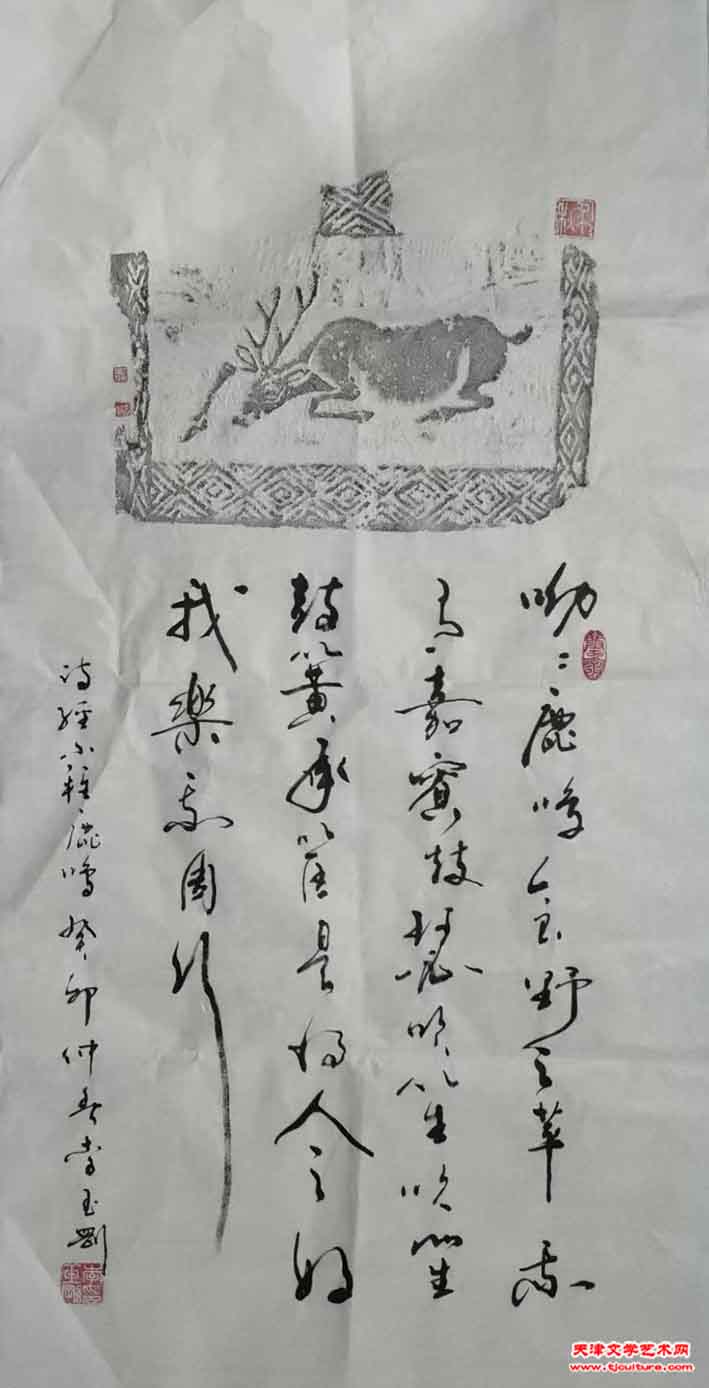 呦〻鹿鳴食野之苹我
有嘉賓鼓瑟吹笙吹笙
鼓簧承筐是将人之好
我樂我周行
诗經小雅鹿鳴癸卯仲春李玉剛
天津文学艺术网
www.tjculture.com